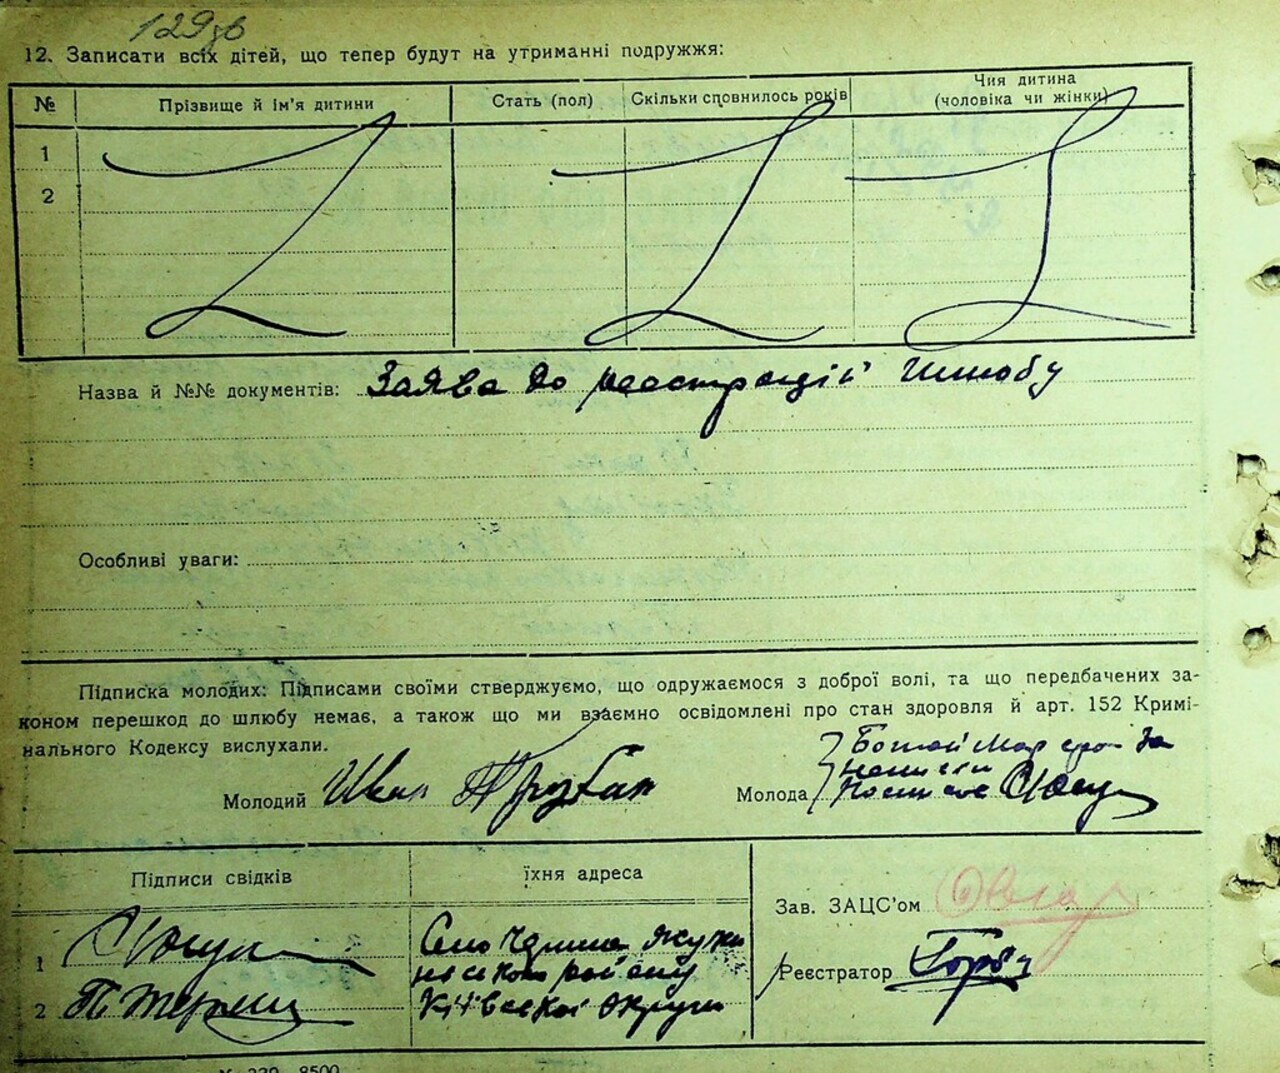 129зв
12. Записати всіх дітей, що тепер будут на утриманні подружжя:
№ Прізвище й ім'я дитини Стать (пол) Скільки сповнилось років Чия дитина (чоловіка чи жінки)
1
2
Назва й №№ документів: Заява до реєстрації шлюбу
Особливі уваги:
Підписка молодих: Підписами своїми стверджуємо, що одружаємося з доброї волі, та що передбачених за-
коном перешкод до шлюбу немає, а також що ми взаємно освідомлені про стан здоровля й арт. 152 Кримі-
нального Кодексу вислухали.
Молодий Иван
Молода
Підписи свідків їхня адреса
Зав. ЗАЦС'ом
1 Село
району
Реєстратор
2 Київської Округи
№ 339 8500